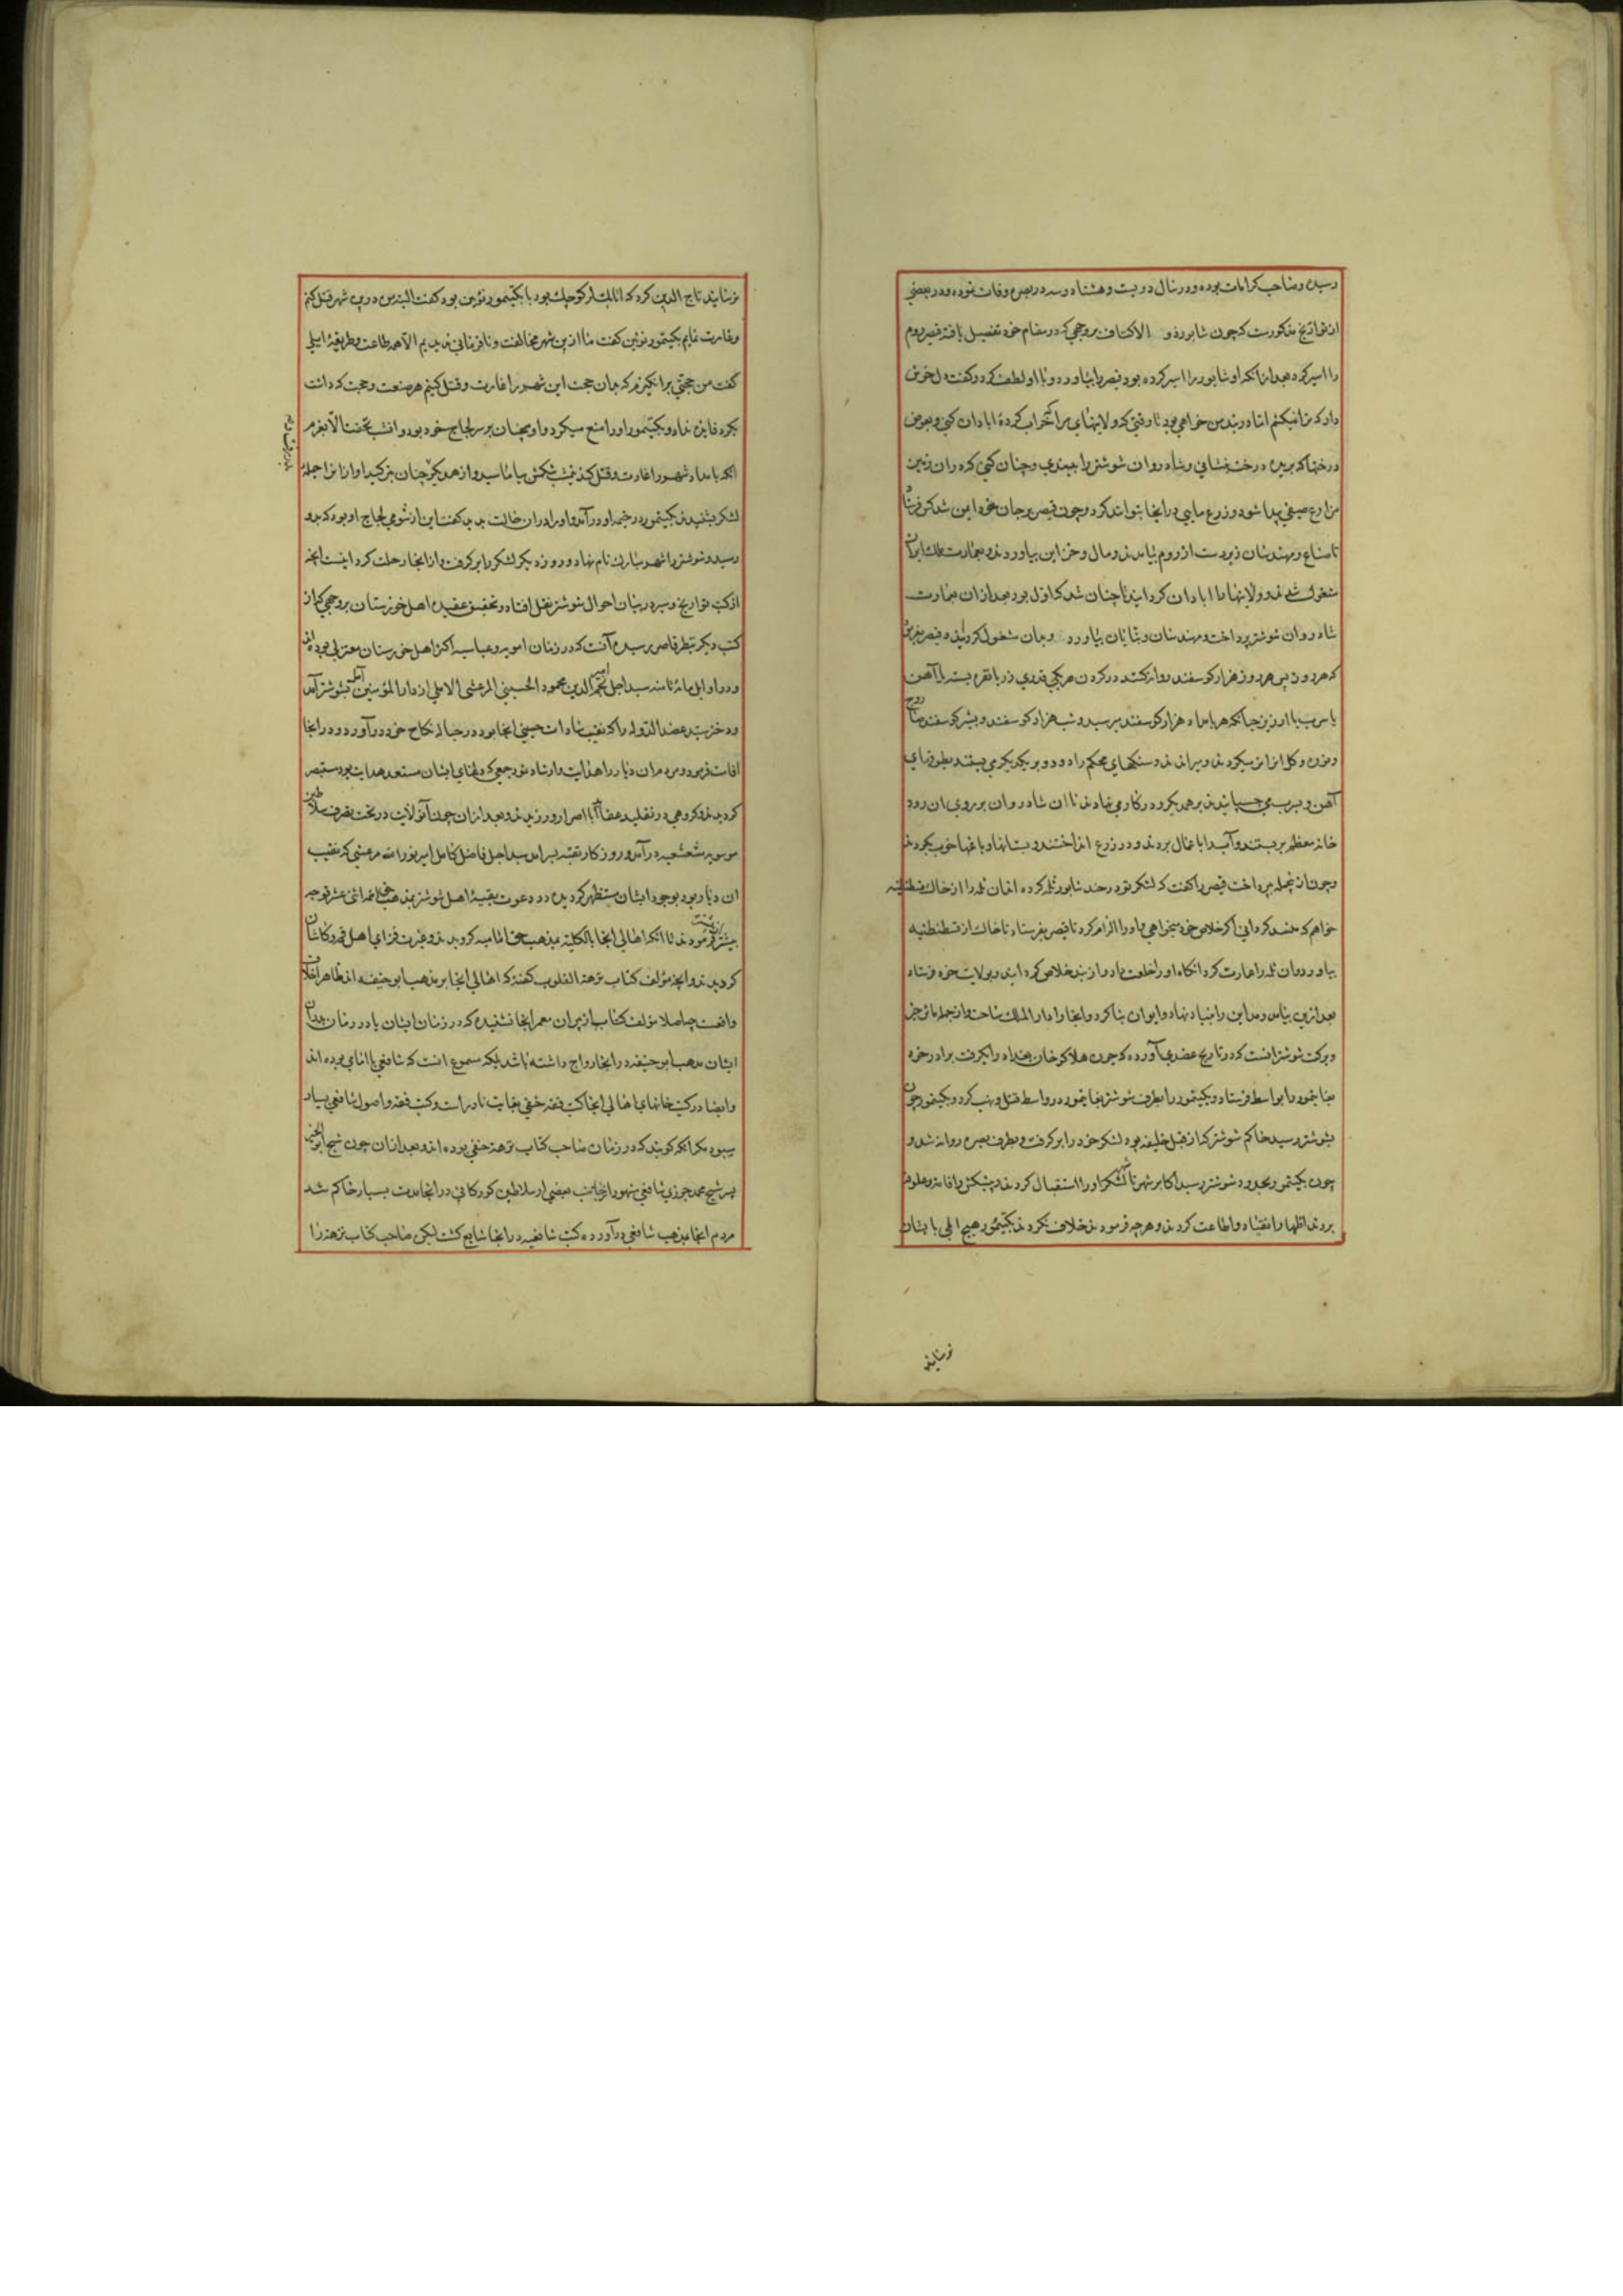 رسیده و صاحب کرامات بوده و در سال دویست و هشتاد و سه در بصره وفات نموده و در بعضی
از تواریخ مذکورست که چون شاپور ذو الاکتاف بروجهی که در مقام خود تفصیل یافته قیصر روم
را اسیر کرد بعد از آنکه او شاپور را اسیر کرده بود قیصر را بیاورد و با او لطف کرد و گفت دل خوش
دار که ترا نمیکشم اما در بند من خواهی بود تا وقتی که ولایتهای مرا که خراب کردهٔ ابادان کنی و بعوض
درختها که بریده درخت بنشانی و شادروان شوشتر را ببندی و چنان کنی که در ان زمین
مزارع صیفی پیدا شود و زرع مایی در انجا بتواند کرد و چون قیصر بر جان خود ایمن شد کس فرستاد
تا صناع و مهندسان زبردست از روم بیامدند و مال و خزاین بیاوردند و بعمارت ملک ایران
مشغول شدند و ولایتها را ابادان کردانیدند تا چنان شد که اول بود بعد ازان بعمارت
شادروان شوشتر پرداخت و مهندسان و بنایان بیاورد و بدان مشغول کردند و قیصر بفرمود
که هر روز پس هر روز هزار گوسفند روانه کنند در گردن هر یکی قدری زر یا نقره بسته یا آهن
یا سرب یا ارزیز چنانکه هر بامداد هزار گوسفند برسید و شب هزار گوسفند و بشیر گوسفند
و نوره و گل انرا تر میکردند و میراندند و سنگهای محکم را دو دو بر یکدیگر می بستند بطوقهای
آهن و سرب می چسپانیدند بر همدیگر و در کار می نهادند تا ان شادروان بر روی ان رود
خانه معظم بر بستند و آب را باعمال بردند و در زرع انداختند و بستانها و باغها خوب بکردند
و چون ازینجمله پرداخت قیصر را گفت که لشکر تو در جند شاپور ثلمه کرده اند ان ثلمه را از خاک قسطنطنیه
خواهم که منسد کردانی اگر خلاص خود میخواهی و او را الزام کرد تا قیصر بفرستاد تا خاک از قسطنطنیه
بیاوردند و ان ثلمه را عمارت کرد انگاه او را خلعت داد و از بند خلاص کردانید و بولایت خود فرستاد
بعد ازین بیامد و مداین را بنیاد نهاد و ایوان بنا کرد و انجا را دار الملک ساخت و از جمله ماثر خیر
و برکت شوشتر انست که در تاریخ عضدی آورده که چون هلاکو خان بغداد را بگرفت برادر خود
بغا تیمور را بواسط فرستاد و بکتیمور را بطرف شوشتر بغا تیمور در واسط قتل و نهب کرد و بکتیمور چون
بشوشتر رسید حاکم شوشتر که از قبل خلیفه بود لشکر خود را برگرفت و بطرف بصره روانه شد و
چون بکتیمور بحدود شوشتر رسید اکابر شهر لشکر او را استقبال کردند و پیشکش و اقامت و علوفه
بردند اظهار انقیاد و اطاعت کردند و هر چه فرمود ند خلاف نکردند بکتیمور هیچ المی بایشان
نرسانید
نرسانید تاج الدین کرد که اتابک لر کوچک بود با بکتیمور نوئین بود گفت البته من درین شهر قتل کنم
و غارت نمایم بکتیمور نوئین گفت ما ازین شهر مخالفت و نافرمانی ندیدیم الا همه طاعت و طریقهٔ ایلی
گفت من حجتی برانگیزم که بدان حجت این شهر را غارت و قتل کنیم هر صنعت و حجت که دانست
بکرد فایده نداد و بکتیمور او را منع میکرد و او همچنان بر سر لجاج خود بود و انشب بخفت الا بعزم
انکه بامداد شهر را غارت و قتل کند نیمشب شکمش بیاماسید و از همدیگر چنان بترکید که اواز انرا جملهٔ
لشکر بشنیدند بکتیمور در خیمه او در آمد و او را در ان حالت بدید گفت این از شومی لجاج او بود که بدو
رسید و شوشتر را شهر مبارک نام نهاد و روز دیگر لشکر را برگرفت و از انجا رحلت کرد اینست انچه
از کتب تواریخ و سیر در بیان احوال شوشتر نقل افتاد و تحقیق عقیده اهل خوزستان بروجهی که از
کتب دیگر بنظر قاصر رسیده آنست که در زمان امویه و عباسیه اکثر اهل خوزستان معتزلی بوده اند
و در اوایل مائه ثامنه سید اجل امیر نجم الدین محمود الحسینی المرعشی الاملی از دار المؤمنین آمل بشوشتر آمد
و دختر سید عضد الدوله را که نقیب سادات حسینی انجا بود در حباله نکاح خود درآورد و در انجا
اقامت فرمود و مردم ان دیار را هدایت و ارشاد نمود جمعی که دلهای ایشان مستعد هدایت بود مستبصر
گردیدند و گروهی در تقلید عقاید آبا اصرار ورزیدند و بعد ازان چون آن ولایت در تحت تصرف سلاطین
موسویه مشعشعیه درآمد و روزگار تقیه بسر امد سید اجل فاضل کامل امیر نور الله مرعشی که نقیب
ان دیار بود بوجود ایشان مستظهر گردیده در دعوت بقیهٔ اهل شوشتر بمذهب حق ائمه اثنی عشر توجه
بیشتر فرمودند تا انکه اهالی انجا بالکلیه بمذهب حق امامیه گرویدند و غیرت فزای اهل قم و کاشان
گردیدند و انچه مؤلف کتاب نزهة القلوب گفته که اهالی انجا بر مذهب ابو حنیفه اند ظاهرا خلاف
واقعست چه اصلا مؤلف کتاب از پیران معمر انجا نشنیده که در زمان ایشان یا در زمان پدران
ایشان مذهب ابو حنیفه در انجا رواج داشته باشد بلکه مسموع انست که شافعی یا امامی بوده اند
و ایضا در کتب خانهای اهالی انجا کتب فقه حنفی بغایت نادر است و کتب فقه و اصول شافعی بسیار
میبود مگر انکه گویند که در زمان صاحب کتاب نزهة حنفی بوده اند و بعد ازان چون شیخ ابو الخیر
پسر شیخ محمد جزری شافعی مشهور از جانب بعضی از سلاطین گورکانی در انجا مدت بسیار حاکم شد
مردم انجا بمذهب شافعی درآورده کتب شافعیه در انجا شایع گشت لیکن صاحب کتاب نزهة را